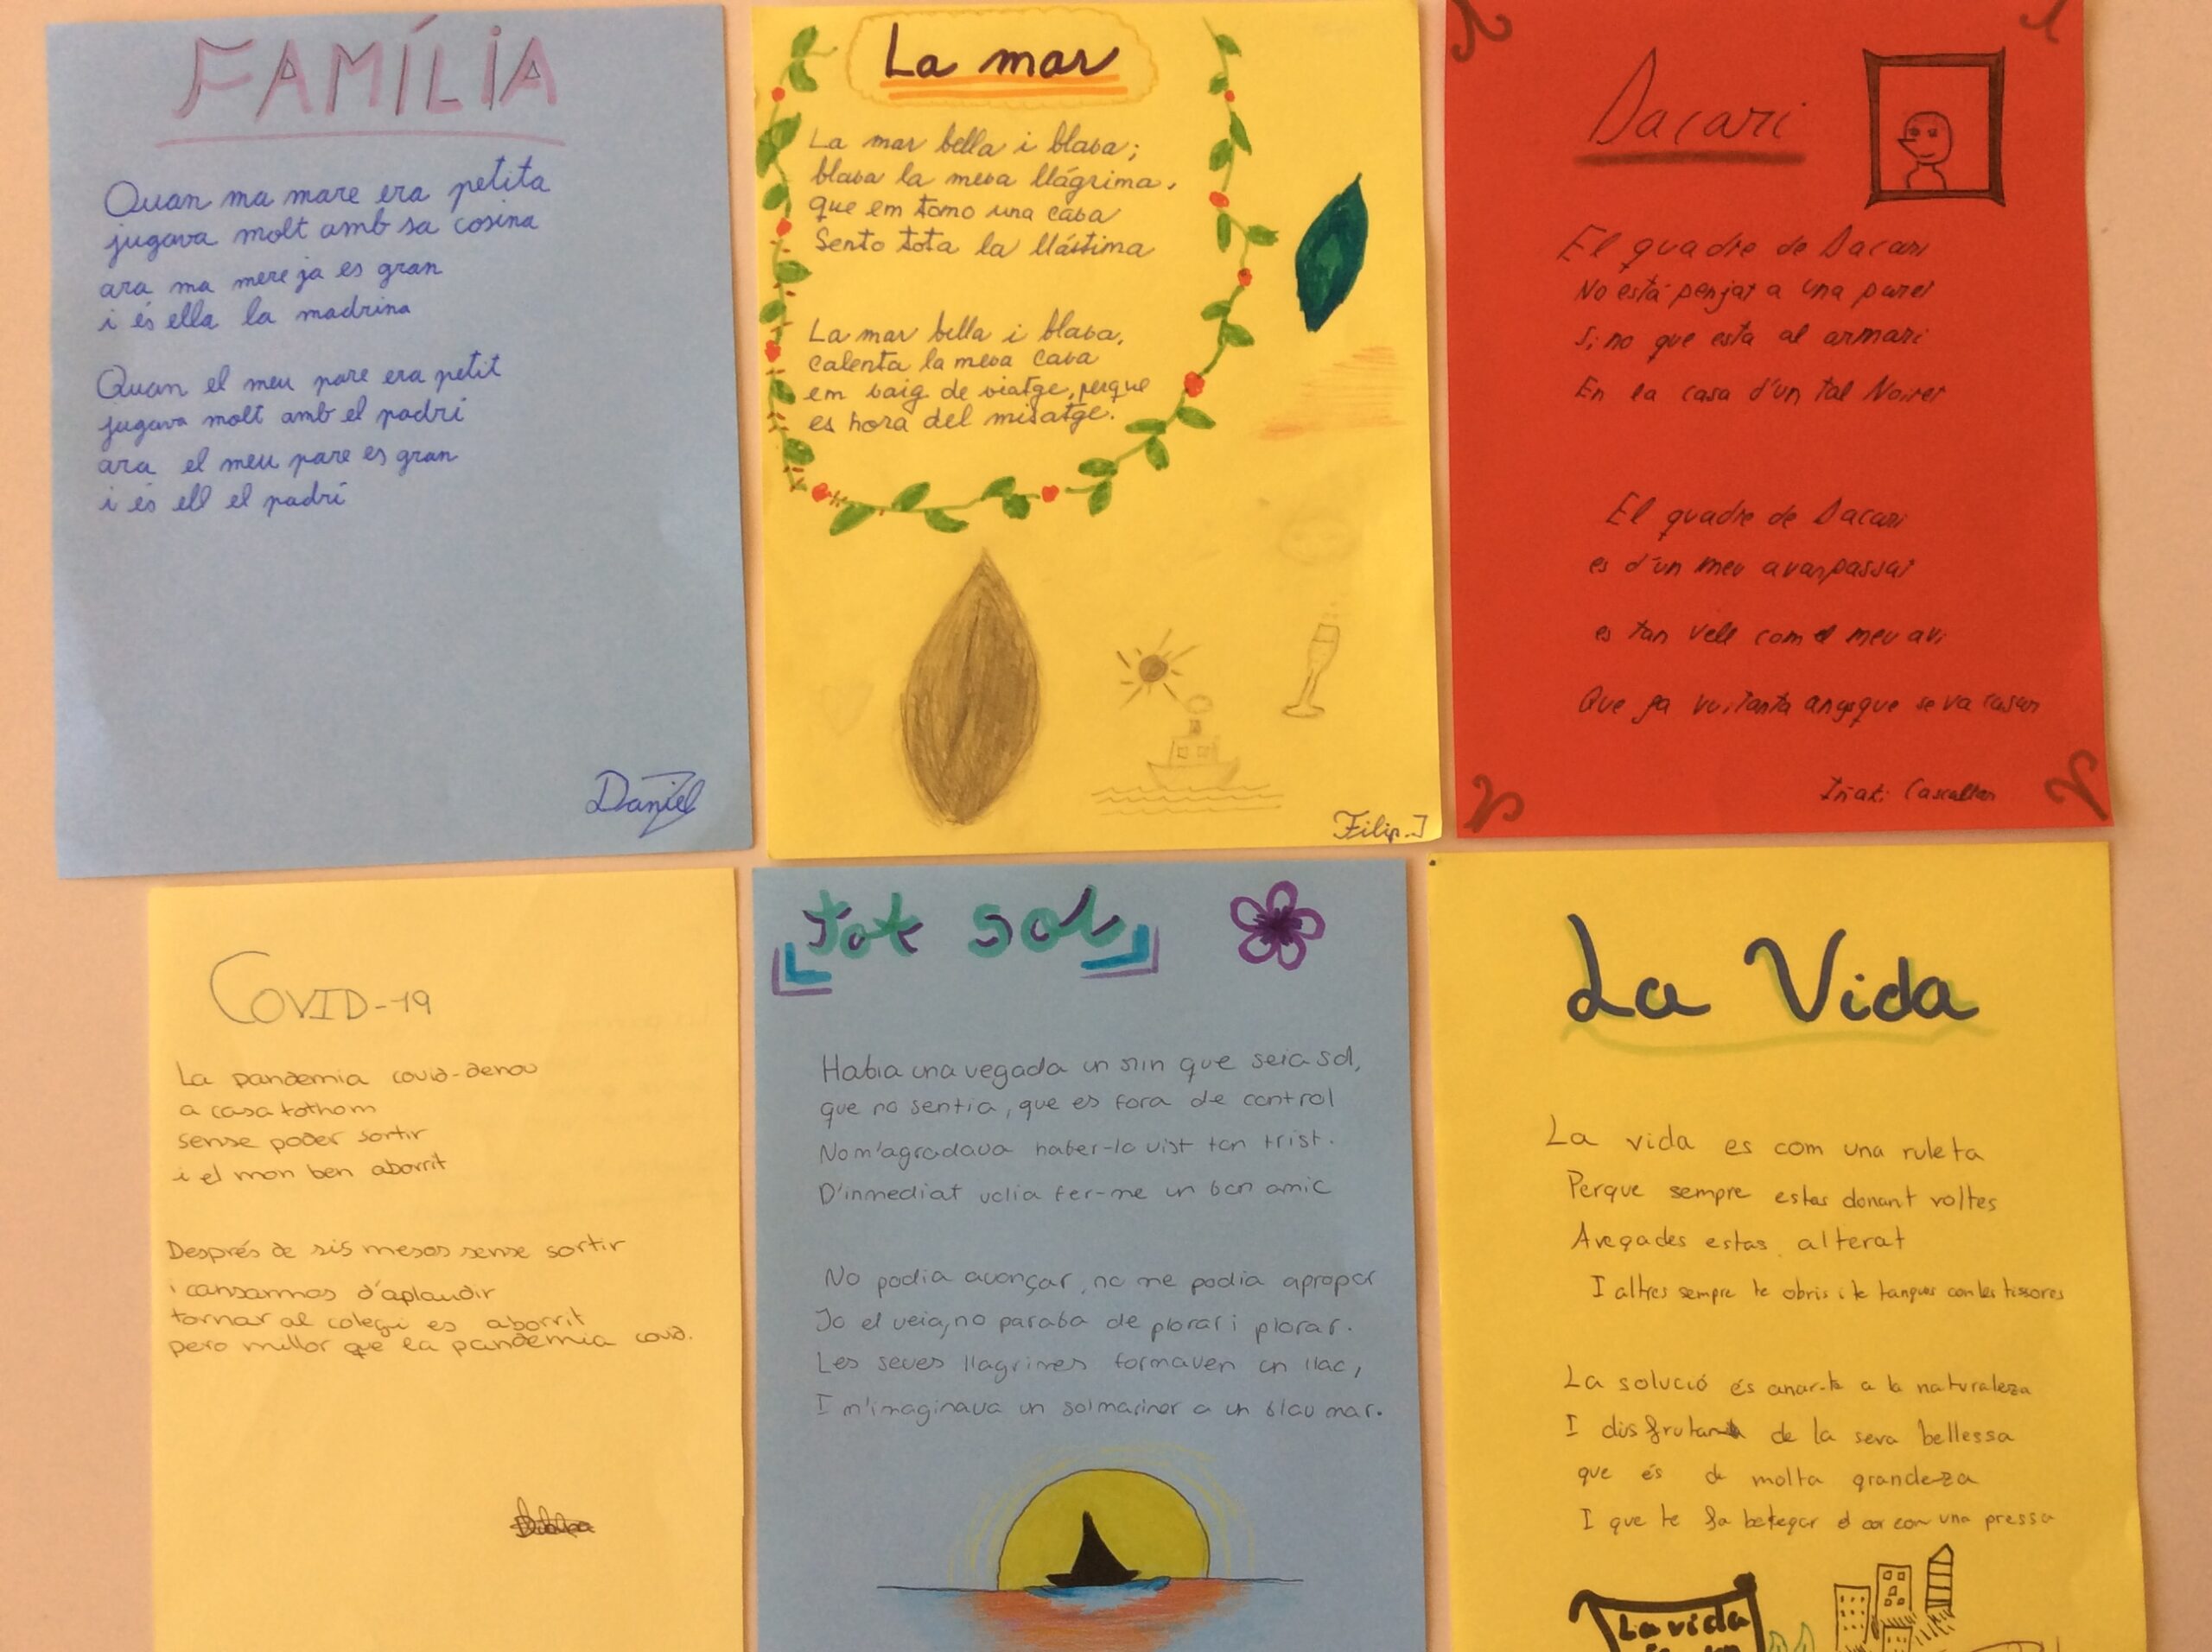 FAMÍLIA
Quan ma mare era petita
jugava molt amb sa cosina
ara ma mere ja es gran
i és ella la madrina
Quan el meu pare era petit
jugava molt amb el padrí
ara el meu pare es gran
i és ell el padrí
Daniel
La mar
La mar bella i blava;
blava la meva llágrima,
que em tomo una cava
Sento tota la llástima
La mar bella i blava,
calenta la meva cava
em vaig de viatge, perque
es hora del misatge.
Filip.J
Dacari
El quadre de Dacari
No está penjat a una paret
Si no que esta al armari
En la casa d'un tal Noiret
El quadre de Dacari
es d'un meu avanpassat
es tan vell com el meu avi
Que fa vuitanta anys que se va casar
Iñaki
COVID-19
La pandemia covid-denou
a casa tothom
sense poder sortir
i el mon ben aborrit
Després de sis mesos sense sortir
i cansarmos d'aplaudir
tornar al colegi es aborrit
pero millor que la pandemia covid.
Tot sol
Habia una vegada un nin que seia sol,
que no sentia, que es fora de control
No m'agradava haber-lo vist tan trist.
D'inmediat volia fer-me un bon amic
No podia avançar, no me podia apropar
Jo el veia, no paraba de plorar i plorar.
Les seves llagrimes formaven un llac,
I m'imaginava un sol mariner a un blau mar.
La Vida
La vida es com una ruleta
Perque sempre estas donant voltes
Avegades estas alterat
I altres sempre te obris i te tanques con les tissores
La solució és anar-te a la naturaleza
I disfrutar de la seva bellessa
que és de molta grandeza
I que te fa bategar el cor con una pressa
La vida